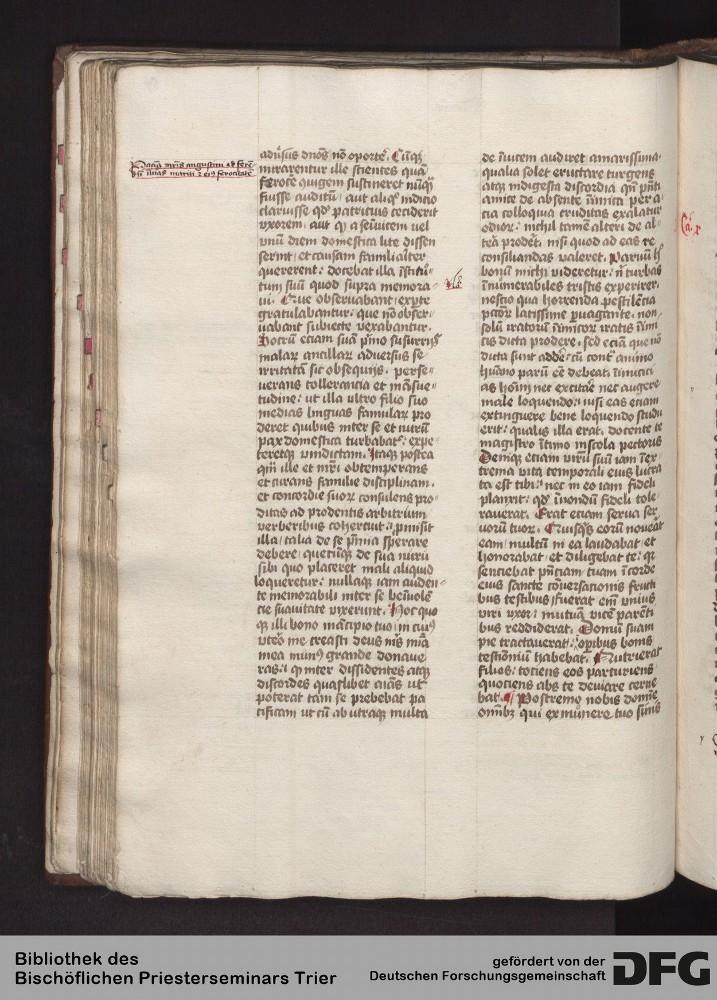 adũsus dños nõ oportẽ. Cũq̃
mirarentur ille scientes quã
feroce ꝯiugem sustineret nũq̃
fuisse auditũ / aut aliq° indicio
claruisse qd patricius ceciderit
vxorem / aut qͥ a seĩuicem vel
vnũ diem domestica lite dissen
serint / et causam familialiter
quererent : docebat illa ĩstitu
tum suũ quod supra memora
ui. Que obseruabant / exꝑte
gratulabantur. que nõ obser
uabant subiecte vexabantur.
Socrũ eciam suã pͥmo susurrijs
malaꝝ ancillaꝝ aduersus se
irritatã sic obsequijs. perse-
uerans tollerancia et mãsue-
tudine : ut illa vltro filio suo
medias linguas famulaꝝ pro
deret quibus inter se et nurũ
pax domestica turbabatͬ : expe
teretq̃ vindictam. Itaq̃ postea
qm̃ ille et mr̃i obtemperans
et curans familie disciplinam.
et concordie suoꝝ consulens pro
ditas ad prodentis arbitrium
verberibus cohercuit : ꝓmisit
illa / talia de se p̃mia sperare
debere / quecũq̃ de sua nuru
sibi quo placeret mali aliquid
loqueretur : nullaq̃ iam auden-
te memorabili inter se beniuolẽ
cie suauitate vixerunt. Hoc quo
q̃ illi bono mãcipio tuo / in cuiꝰ
vtẽo me creasti deus mẽs mĩa
mea munꝰ grande donaue
ras : qͥ inter dissidentes atq̃
discordes quaslibet aĩas ubi
poterat tam se prebebat pa
cificam ut cũ ab utraq̃ multa
Vacia mr̃is augustini ad ferẽ
dũ iurias mariti ⁊ eiꝰ ferocitatẽ
de ĩuicem audiret amarissima.
qualia solet eructare turgens
atq̃ indigesta discordia qñ pñti
amice de absente ĩimica per a
cia colloquia cruditas exalatur
odioꝝ : nichil tamẽ alteri de al-
tẽa prodẽt. nisi quod ad eas re
consiliandas valeret. Paruũ h͛
bonũ michi videretur : nͥ turbas
ĩnumerabiles tristis experirer.
nescio qua horrenda pestilẽcia
pctõꝝ latissime ꝑuagante. non-
solũ iratorũ ĩimicoꝝ iratis ĩimi
cis dicta prodere. sed eciã que nõ
dicta sunt addẽ : cũ contͣ animo
hũano parũ eẽ debeat. ĩimicici
as hoĩm nec excitãe nec augere
male loquendo : nisi eas eciam
extinguere bene loquendo studu
erit : qualis illa erat. docente te
magistro ĩtimo in scola pectoris
Deniq̃ etiam virũ suũ iam ĩ ex
trema vita temporali eius lucra
ta est tibi : nec in eo iam fideli
planxit : qd ĩ nondũ fideli tole
rauerat. Erat eciam serua ser
uorũ tuoꝝ. Quisq̃s eorũ nouerat
eam / multũ in ea laudabat et
honorabat et diligebat te : qͥ
senciebat pñciam tuam ĩ corde
eius sancte cõuersacionis fructi
bus testibus / fuerat em̃ vnius
viri vxor : mutuã vicẽ parẽti
bus reddiderat. Domũ suam
pie tractauerat : operibus bonis
testimoniũ habebat. Nutrierat
filios : totiens eos parturiens
quociens abs te deuiare cerne
bat. Postremo nobis domĩe
omĩbꝫ qui ex munere tuo sĩnis
Ca. x
Bibliothek des
Bischöflichen Priesterseminars Trier
gefördert von der
Deutschen Forschungsgemeinschaft
DFG